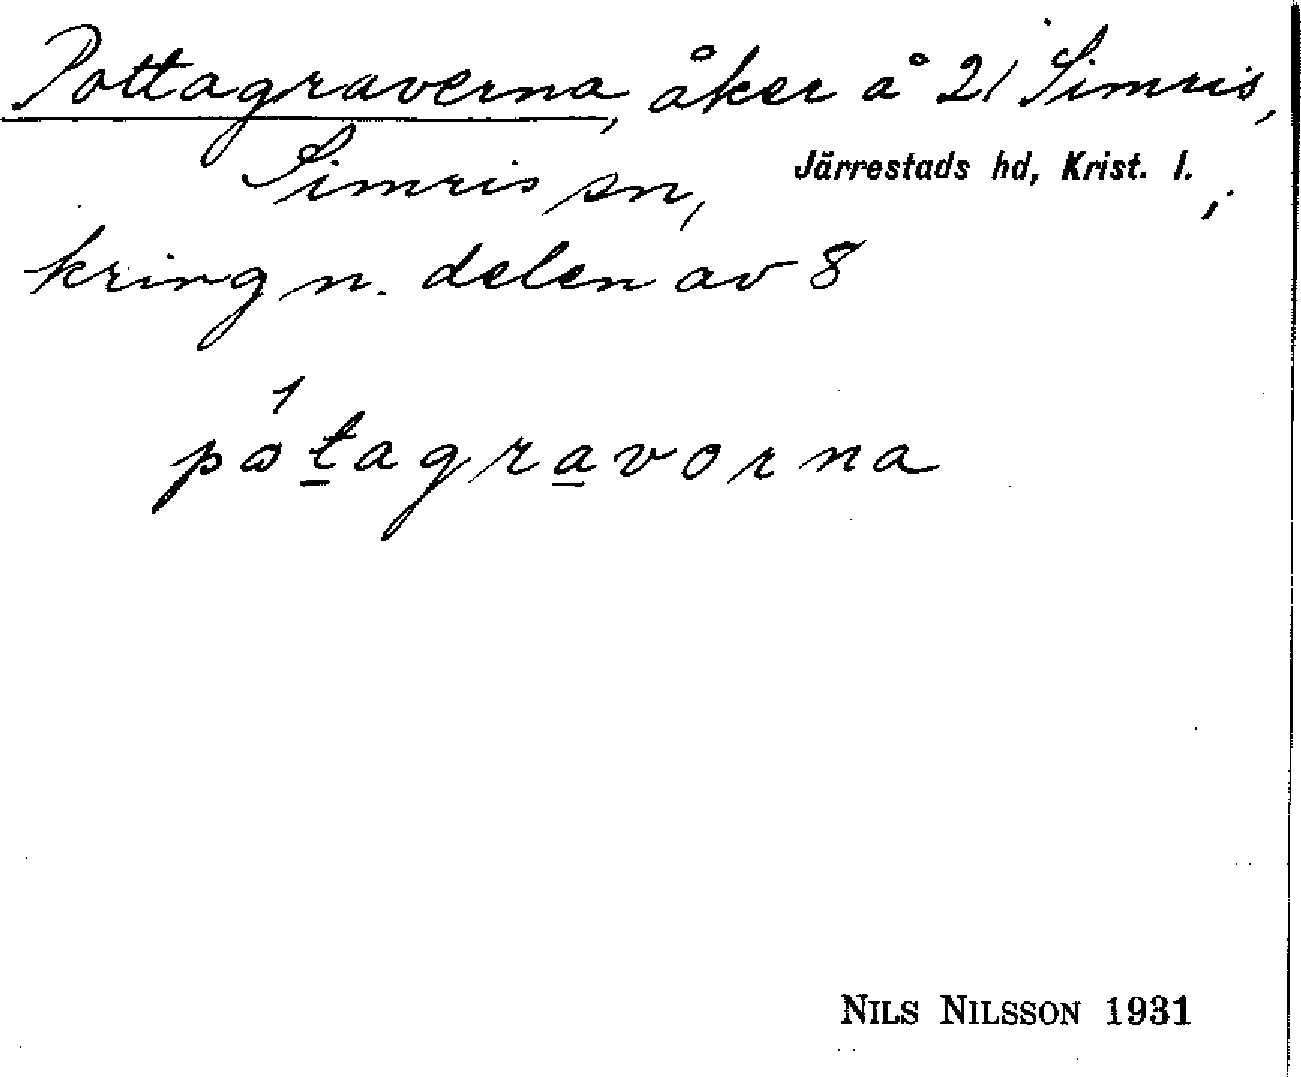 Pottagraverna, åker å 21 Simris,
Simris sn, Järrestads hd, Krist. l. ;
kring n. delen av 8
1
påtagravorna
NILS NILSSON 1931